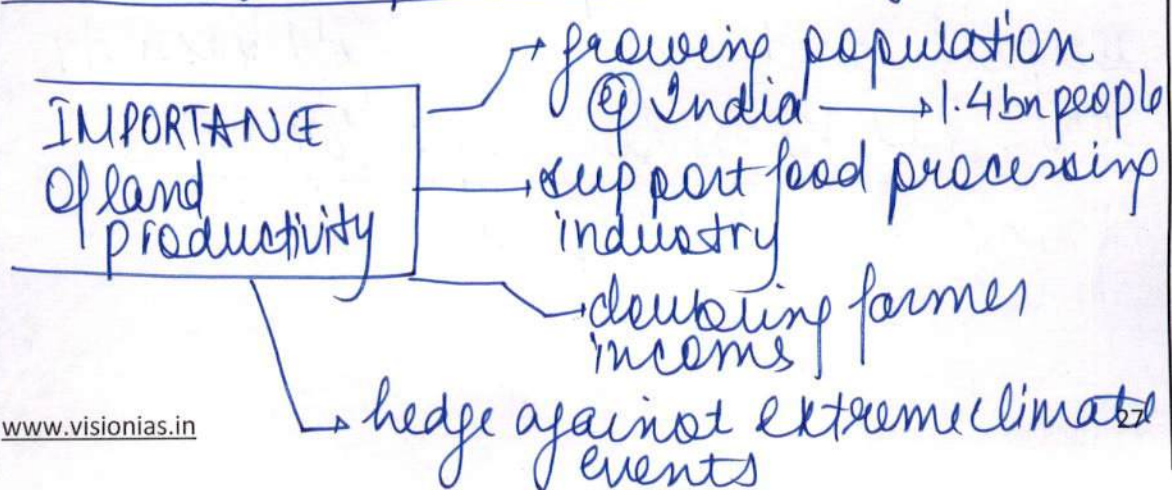 IMPORTANCE
of land
productivity
→ growing population
eg India → 1.4bn people
→ support food processing
industry
→ doubling farmer
incoms
→ hedge against extreme climate
events
www.visionias.in
27